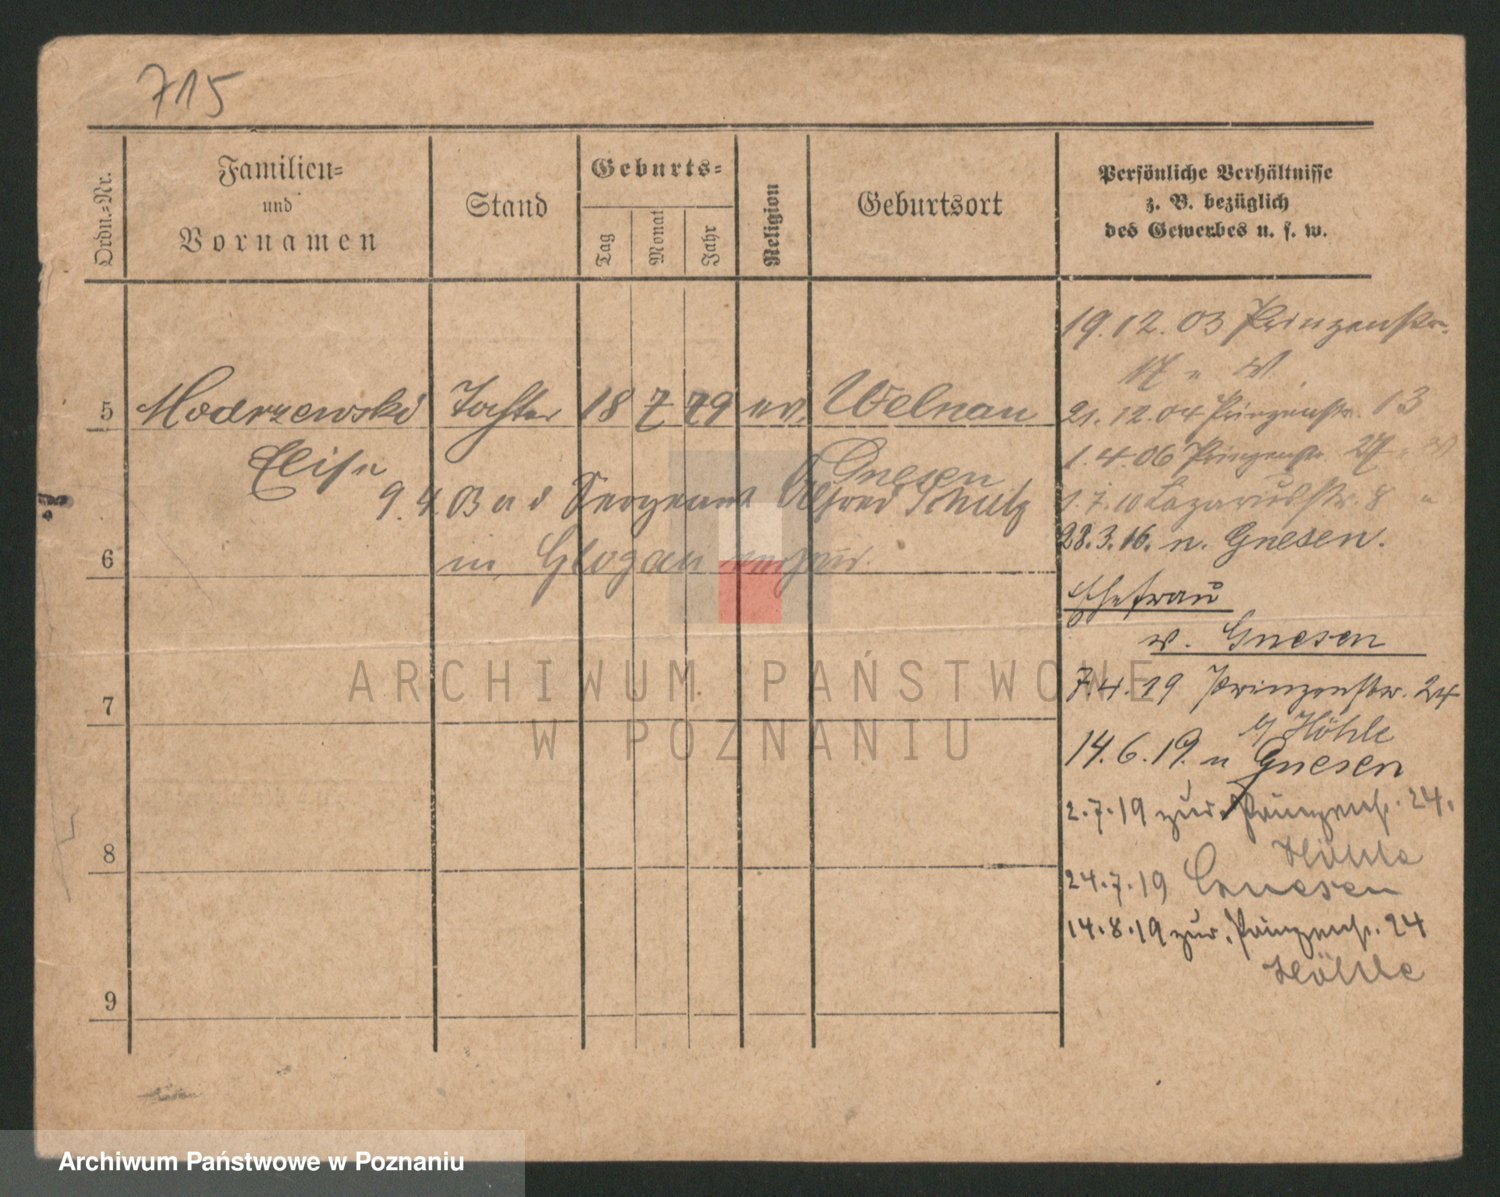 715
Ordn.-Nr.
Familien-
und
Vornamen
Stand
Geburts-
Tag
Monat
Jahr
Religion
Geburtsort
Persönliche Verhältnisse
z. B. bezüglich
des Gewerbes u. s. w.
19.12.03 Prinzenstr.
17 n W
5 Modrzewski Tochter 18 7 79 ev. Welnau
Elise Gnesen
21.12.04 Prinzenstr. 13
1.4.06 Prinzenstr. 27
9.4.03 a d Sergeant Alfred Schulz
1.7.10 Lazarusstr. 8
in Glogau verheir.
28.3.16. n. Gnesen.
6
Ehefrau
w. Gnesen
7.4.19 Prinzenstr. 24
b/ Höhle
7
14.6.19. n Gnesen
2.7.19 zur. Prinzenstr. 24.
Höhle
8
24.7.19 Gnesen
14.8.19 zur. Prinzenstr. 24
Höhle
9
ARCHIWUM PAŃSTWOWE
W POZNANIU
Archiwum Państwowe w Poznaniu